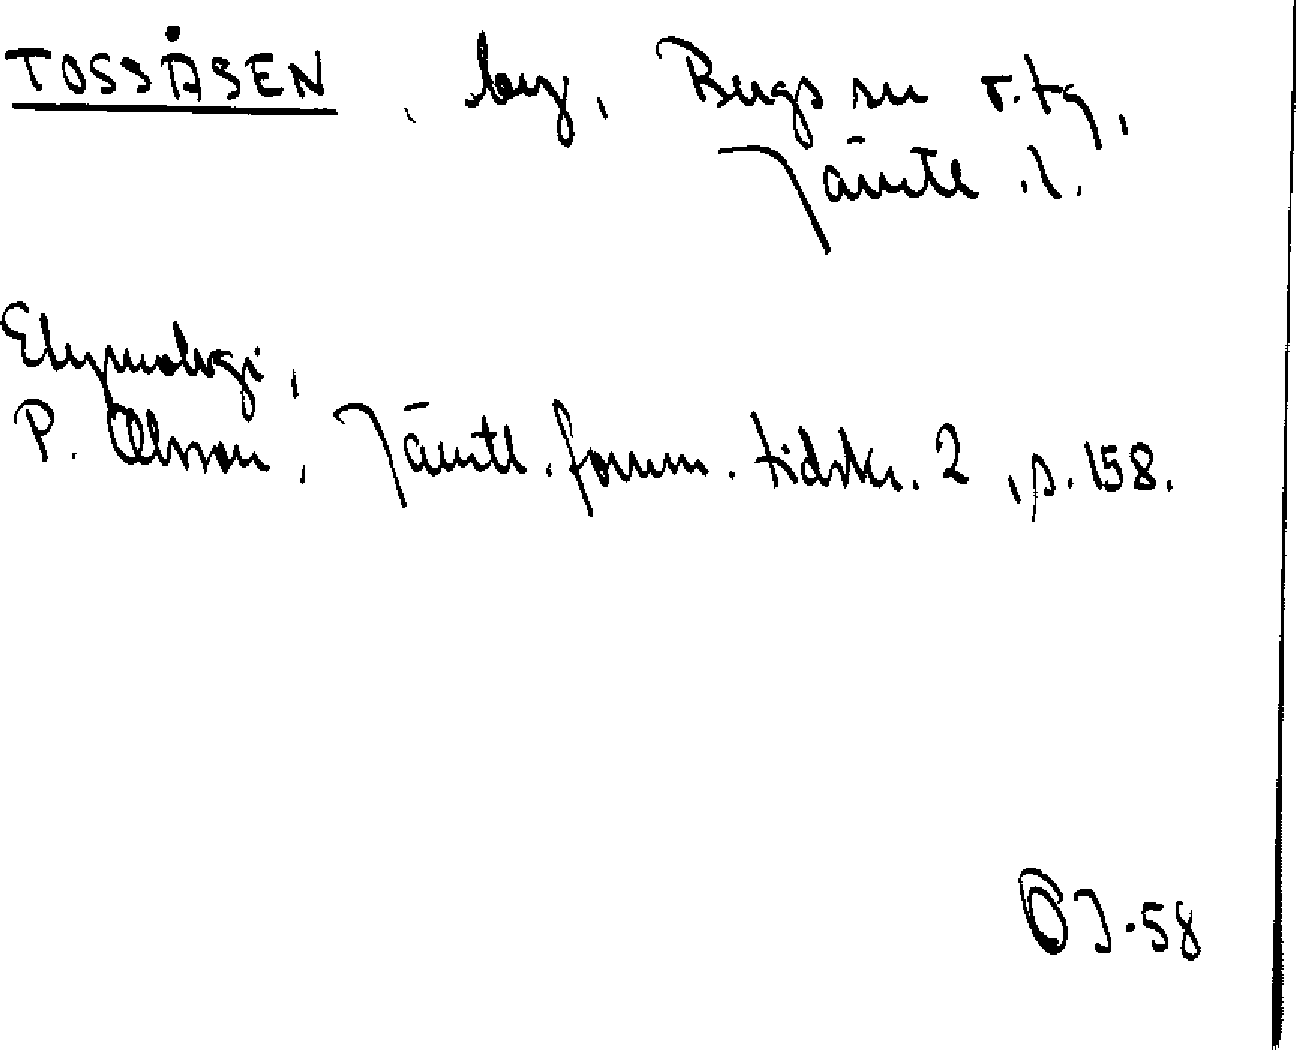 TOSSÅSEN, by, Bergs sn o. tg,
Jämtl. l.
Etymologi,
P. Olsson, Jämtl. fornm. tidskr. 2, s. 158.
OJ-58